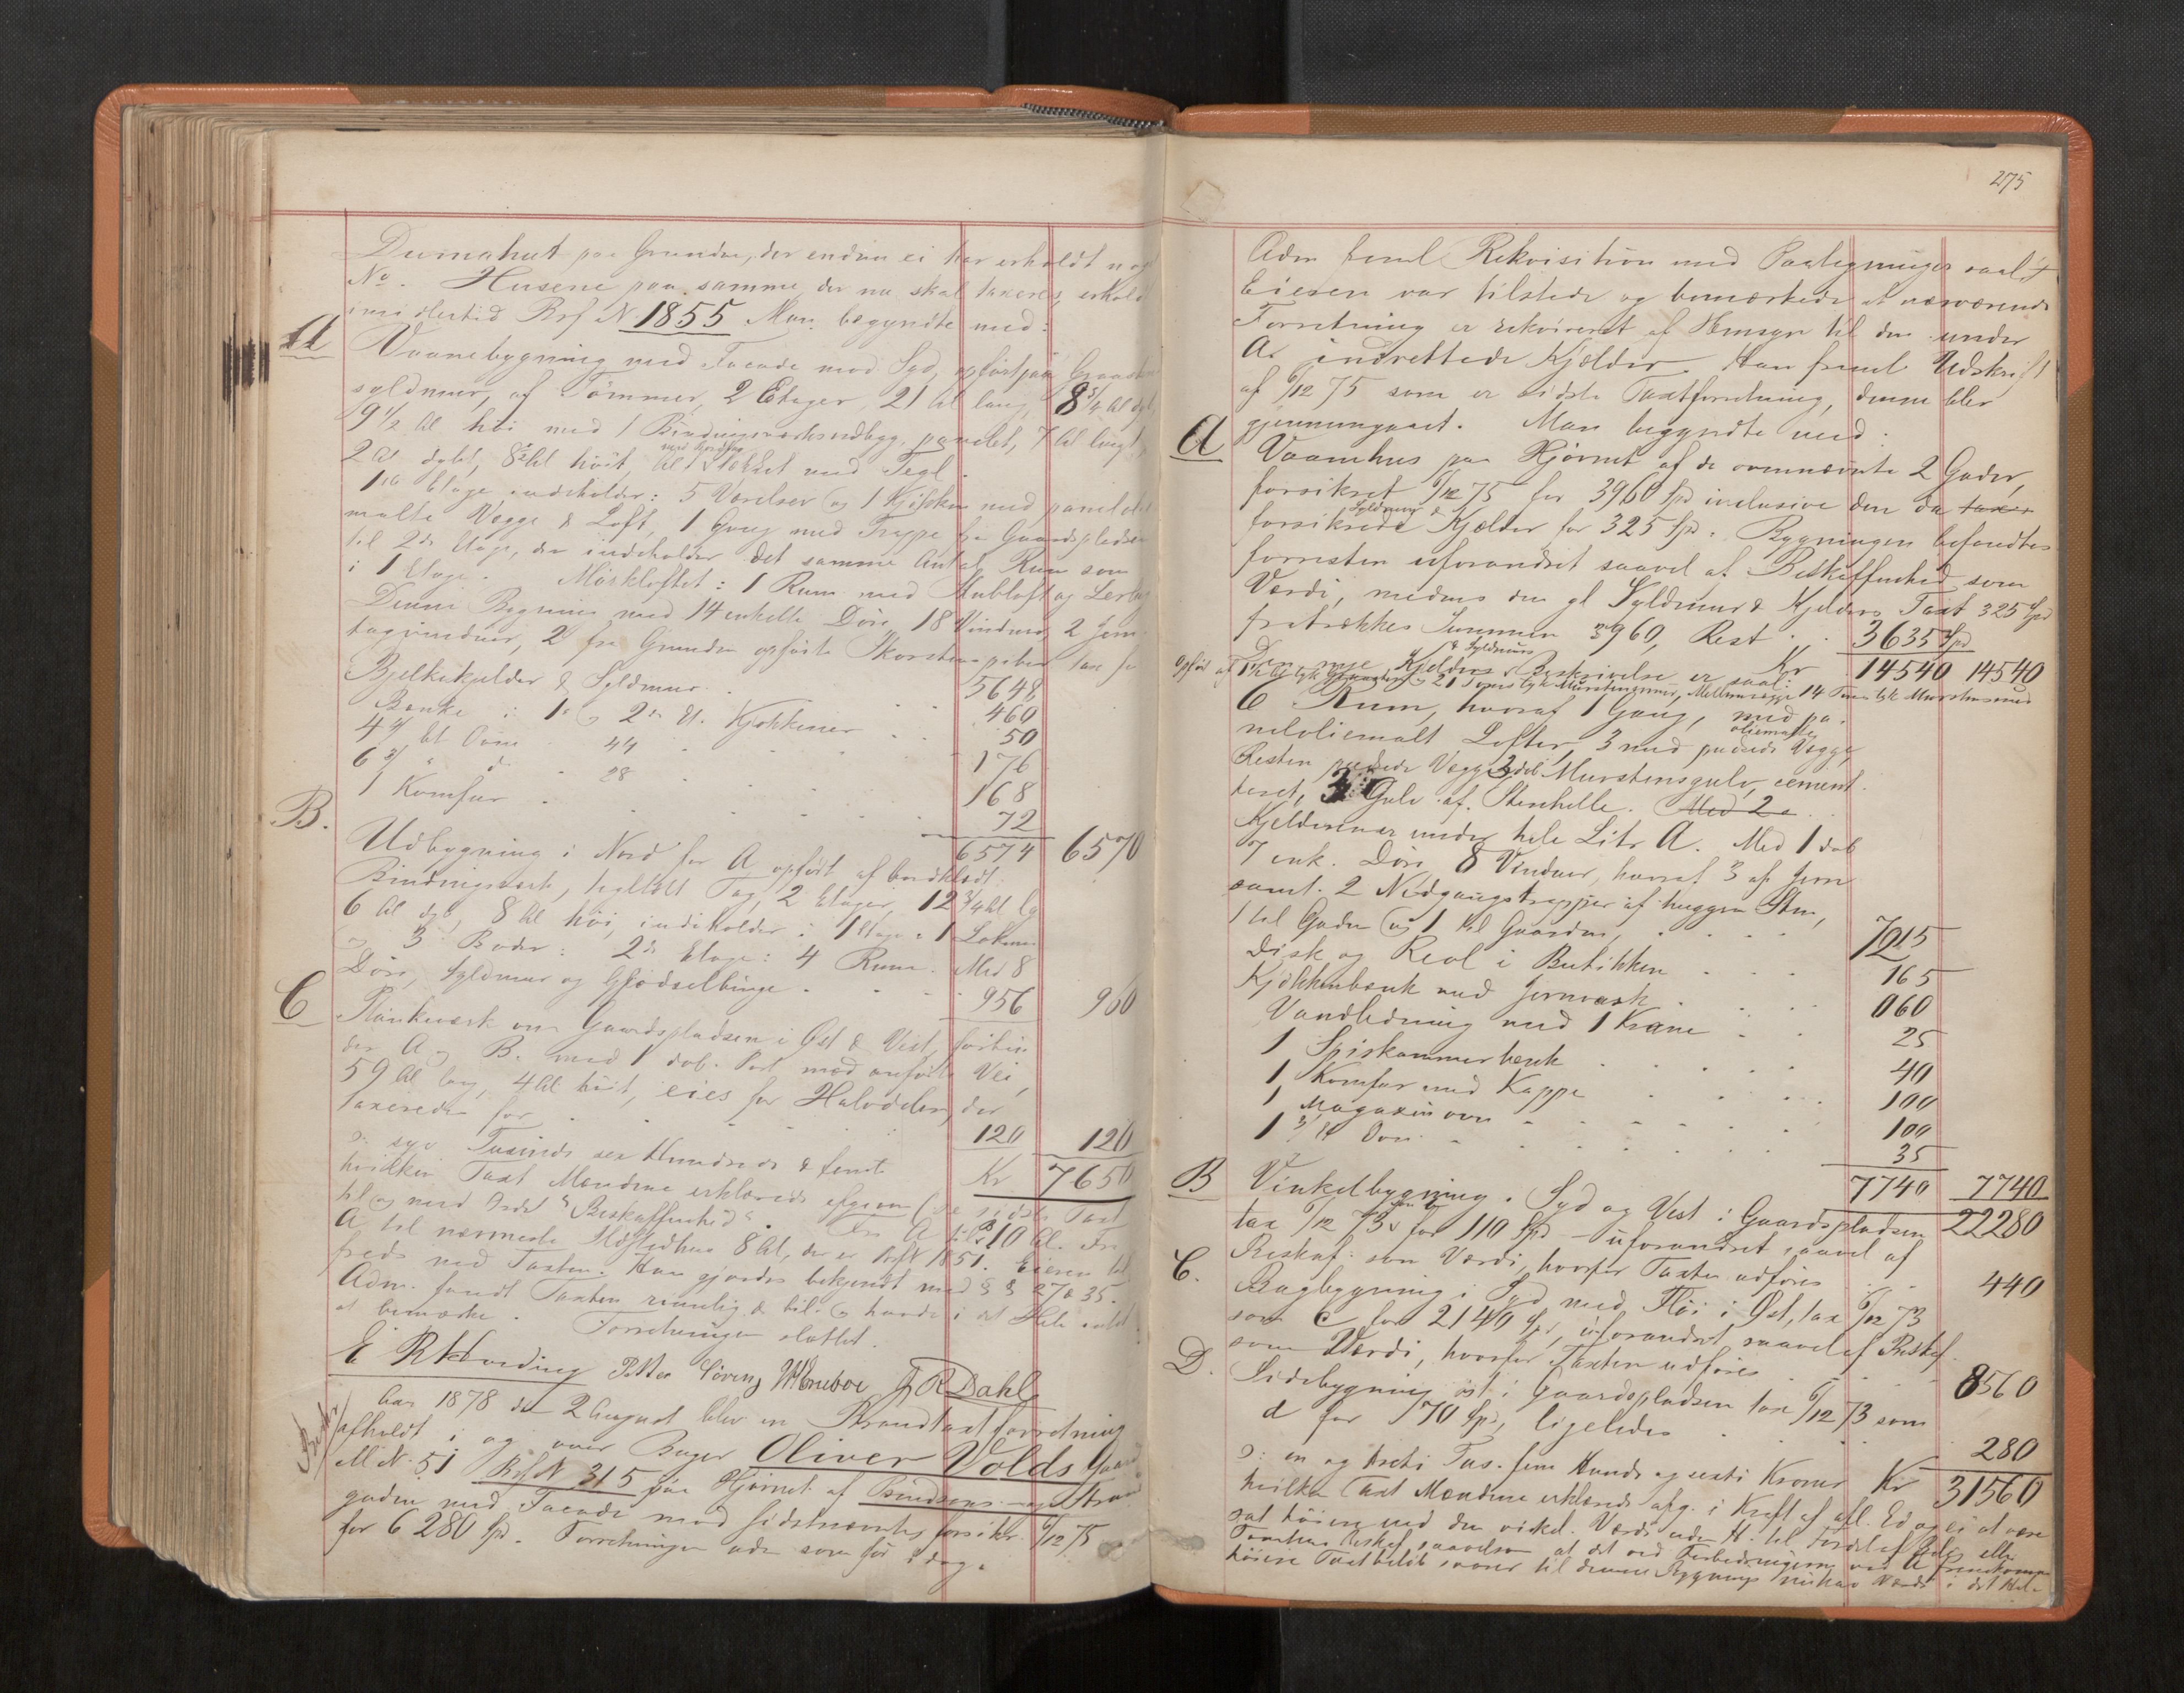 Dumahut paa Grunden, der endnu ei har erholdt no
No. Husene paa samme, der nu skal taxeres, erhold
imidlertid Brf N 1855 Man begyndte med:
A Vaanebygning med Facade mod Syd, opført paa Graasteens
syldmur, af Tømmer, 2 Etager, 21 Al lang, 8 3/4 Al dyb,
9 1/2 Al høi med 1 Bindingsværksudbygg, panelet, 7 Al langt,
2 Al dybt, 8 Al høit, Alt tækket med Tegl.
1ste Etage indeholder: 5 Værelser og 1 Kjøkken med panelede
malte Vægge & Loft, 1 Gang med Trappe fra Gaardspladsen
til 2den Etage, der indeholder det samme Antal Rum som
i 1 Etage. Mørkloftet: 1 Rum med Stubloft og Lerlag
Denne Bygning med 14 enkelte Døre, 18 Vinduer, 2 Jern
tagvinduer, 2 fra Grunden opførte Skorstenspiber tax for
Bjelkekjelder & Syldmur . 5648,
Bænke i 1ste og 2den Et. Kjøkkener . . 460
50
4 Et Ovne 44 . . 176
6 " d 28 . . 168
1 Komfur . . . . 72
6574 6570
B. Udbygning i Nord for A opført af bordklædt
Bindingsværk, tegltekt Tag, 2 Etager, 12 3/4 Al lg
6 Al dyb, 8 Al høi, indeholder i 1 Etage: 1 Lokum
og 3 Boder: 2den Etage: 4 Rum. Med 8
Døre, Syldmur og Gjødselbinge . . . 956 960
C Plankeværk om Gaardspladsen i Øst & Vest, forbin
der A og B. med 1 dob. Port mod anførte Vei,
59 Al lang, 4 Al høit, eies for Halvdelen, der
taxeredes for . . . . . 120 120
o: syv Tusinde sex Hundrede & femti Kr 7650
hvilken Taxt Mændene erklærede afgiven
til og med Ordet "Beskaffenhed". Fra A til B 10 Al. Fra
A til nærmeste Husstedhus 8 Al, der er Brf N 1851. Eieren til
freds med Taxten. Han gjordes bekjendt med §§ 27 & 35.
Adm. fandt Taxten rimelig & bil. og havde i det Hele intet
at bemærke. Forretningen sluttet.
E RHvoding Petter Sørens J R Dahl
Aar 1878 den 2 August blev en Brandtaxtforretning
afholdt i og over Bager Oliver Volds Gaard
M N. 51 Brf N 315 paa Hjørnet af og Strand
gaden med Facade mod sidstnævnte, forsikr. 6/12 75
for 6280 Spd. Forretningen ude som før idag.
275
Adm freml Rekvisition med Paategninger saal:
Eieren var tilstede og bemærkede at nærværende
Forretning er rekvireret af Hensyn til den under
A. indrettede Kjælder. Han freml Udskrift
af 6/12 75 som er sidste Taxtforretning, denne blev
gjennemgaaet. Man begyndte med:
A Vaanehus paa Hjørnet af de ovennævnte 2 Gader,
forsikret 6/12 75 for 3960 Spd inclusive den da taxer
Syldmur &
forsikrede Kjælder for 325 Spd. Bygningen befandtes
forresten uforandret saavel af Beskaffenhed som
Værdi, medens den gl Syldmur & Kjelders Taxt 325 Spd
fratrækkes Summen 3960, Rest . . 3635 Spd
& Syldmurs Kr 14540 14540
Den nye Kjelders Beskrivelse er saal:
opført af 1 1/2 Al tyk Graasten og 21 Toms tyk Murstensmur, Mellemvægge 14 Tom tyk Murstensmur
6 Rum, hvoraf 1 Gang, med pa-
neloliemalt Lofter, 3 med pudsede oliemalte Vægge,
Resten pudsede Vægge, 3 del Murstensgulv, cement
teret, 3 Gulv af Stenhelle. Med 2
Kjelderen er under hele Litr A. Med 1 dob
7 enk. Døre, 8 Vinduer, hvoraf 3 af Jern
samt 2 Nedgangstrapper af huggen Sten,
1 til Gaden og 1 til Gaarden, . . . . 7215
Disk og Reol i Butikken . . . 165
Kjøkkenbænk med Jernvask . . . 060
Vandledning med 1 Krane . . . 25
1 Spiskammerbænk . . . . 40
1 Komfur med Kappe . . . . 100
1 Magazinovn . . . . 100
1 3 Et Ovn . . . . 35
7740 7740
22280
B Vinkelbygning i Syd og Vest i Gaardspladsen
tax 6/12 73 som b for 110 Spd - uforandret saavel af
Beskaf. som Værdi, hvorfor Taxten udføres . . 440
C. Bagbygning i Syd med Fløi i Øst, tax 6/12 73
som c for 2140 Spd, uforandret saavel af Beskaf.
som Værdi, hvorfor Taxten udføres . . . 8560
D. Sidebygning øst i Gaardspladsen tax 6/12 73 som
d for 70 Spd, ligeledes . . . . 280
o: en og treti Tus. fem Hundr og sexti Kroner Kr 31560
hvilken Taxt Mændene erklærede afg. i Kraft af afl. Ed og ei at være
sat høiere end den virkel. Værdi uden H. til Fordel af Beliggenhed eller
Tomtens Beskaf. saavelsom at det ved Forbedringerne ved A fremkomne
høiere Taxtbeløb svarer til denne Bygnings virkel Værdi i det Hele